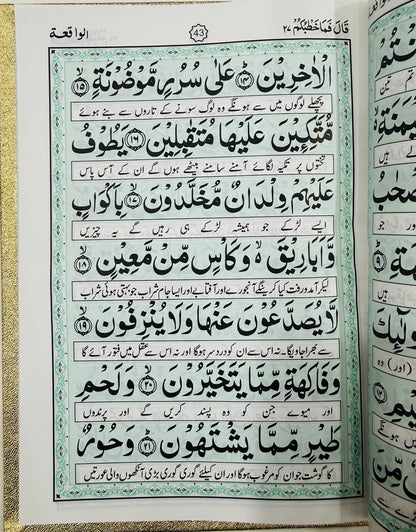 قَالَ فَمَا خَطْبُكُمْ ٢٧
43
الواقعة
الْاٰخِرِيْنَ ﴿۱۴﴾ عَلٰى سُرُرٍ مَّوْضُوْنَةٍ ﴿۱۵﴾
پچھلے لوگوں میں سے ہونگے وہ لوگ سونے کے تاروں سے بنے ہوئے
مُّتَّكِـِٕيْنَ عَلَيْهَا مُتَقٰبِلِيْنَ ﴿۱۶﴾ يَطُوْفُ
تختوں پر تکیہ لگائے آمنے سامنے بیٹھے ہوں گے ان کے آس پاس
عَلَيْهِمْ وِلْدَانٌ مُّخَلَّدُوْنَ ﴿۱۷﴾ بِاَكْوَابٍ
ایسے لڑکے جو ہمیشہ لڑکے ہی رہیں گے یہ چیزیں
وَّاَبَارِيْقَ ۙ وَكَاْسٍ مِّنْ مَّعِيْنٍ ﴿۱۸﴾
لیکر آمدورفت کیا کرینگے آبخورے اور آفتابے اور ایسا جام شراب جو بہتی ہوئی شراب
لَّا يُصَدَّعُوْنَ عَنْهَا وَلَا يُنْزِفُوْنَ ﴿۱۹﴾
سے بھرا جاویگا نہ اس سے ان کو درد سر ہوگا اور نہ اس سے عقل میں فتور آئے گا
وَفَاكِهَةٍ مِّمَّا يَتَخَيَّرُوْنَ ﴿۲۰﴾ وَلَحْمِ
اور میوے جن کو وہ پسند کریں گے اور پرندوں
طَيْرٍ مِّمَّا يَشْتَهُوْنَ ﴿۲۱﴾ وَحُوْرٌ
کا گوشت جو ان کو مرغوب ہوگا اور ان کیلئے گوری گوری بڑی آنکھوں والی عورتیں